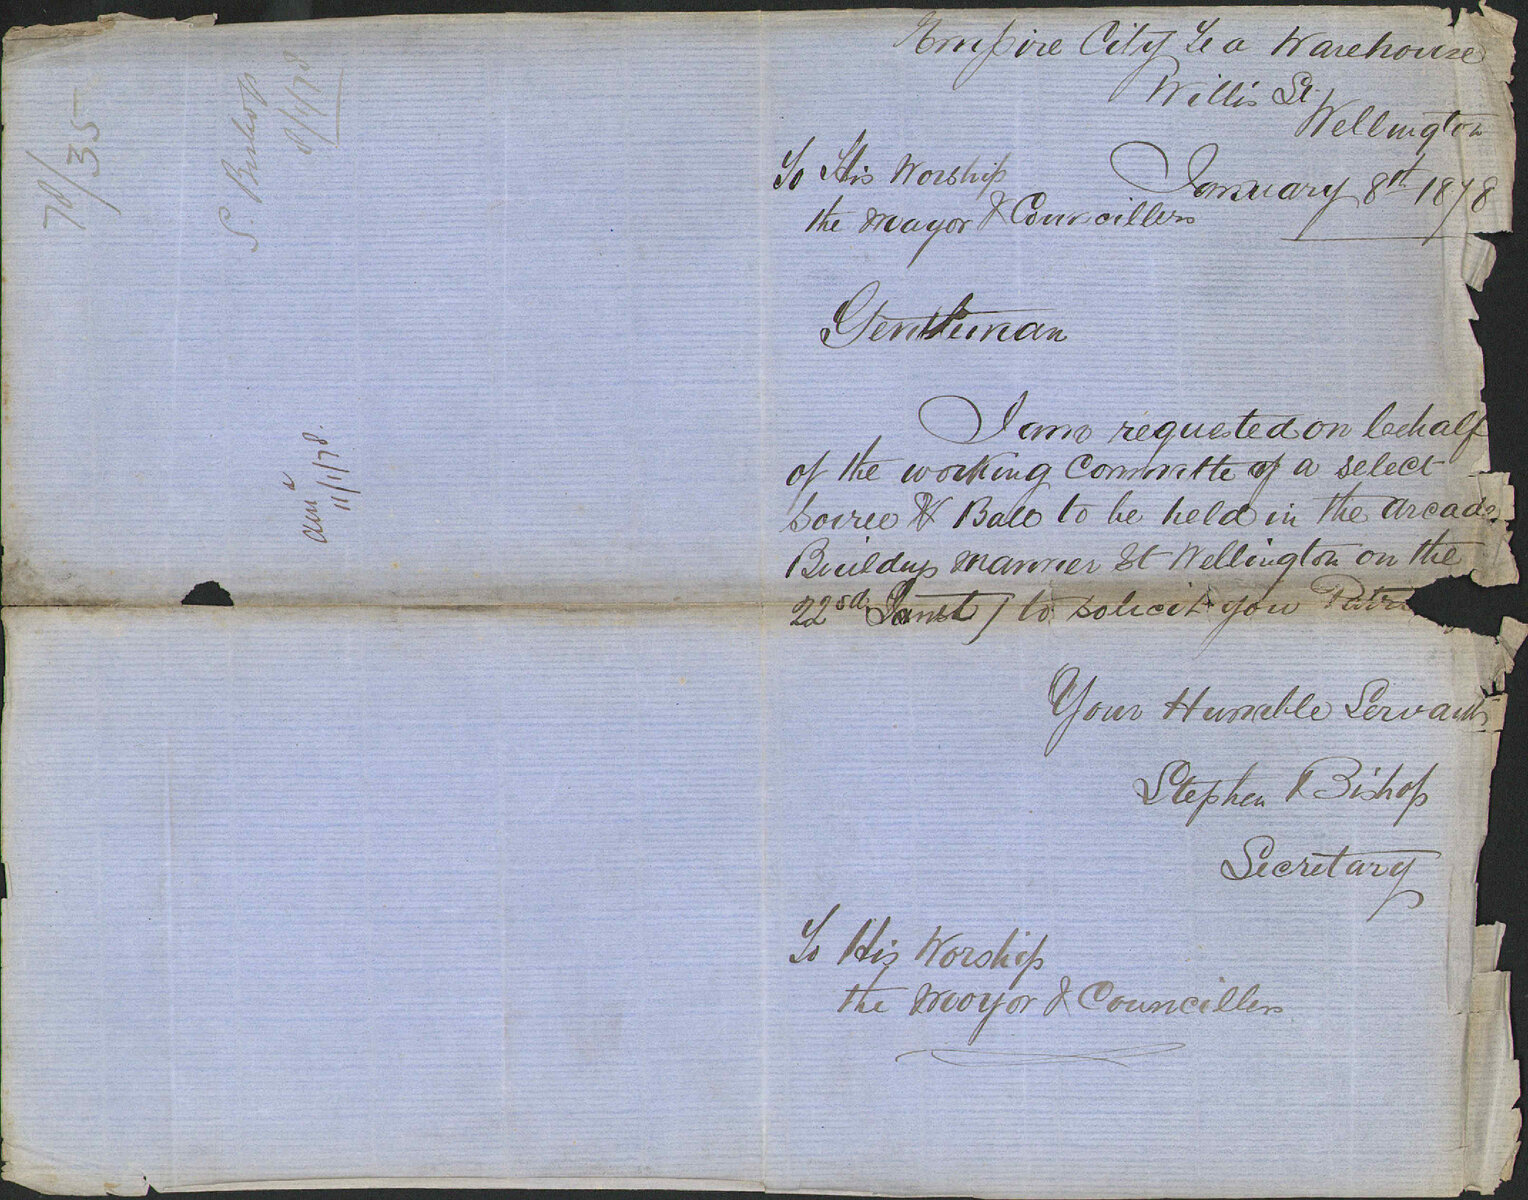 Empire City Tea Warehouse
Willis St
Wellington
January 8th 1878
To His Worship
the Mayor & Councillers
Gentleman
I am requested on behalf
of the working Committe of a select
Soiree & Ball to be held in the Arcade
Buildngs Manner St Wellington on the
22sd Janst to solicit you
Your Humble Servant
Stephen Bishop
Secretary
To His Worship
the Mayor & Councillers
78/35
S. Bishop
8/1/78
11/1/78.